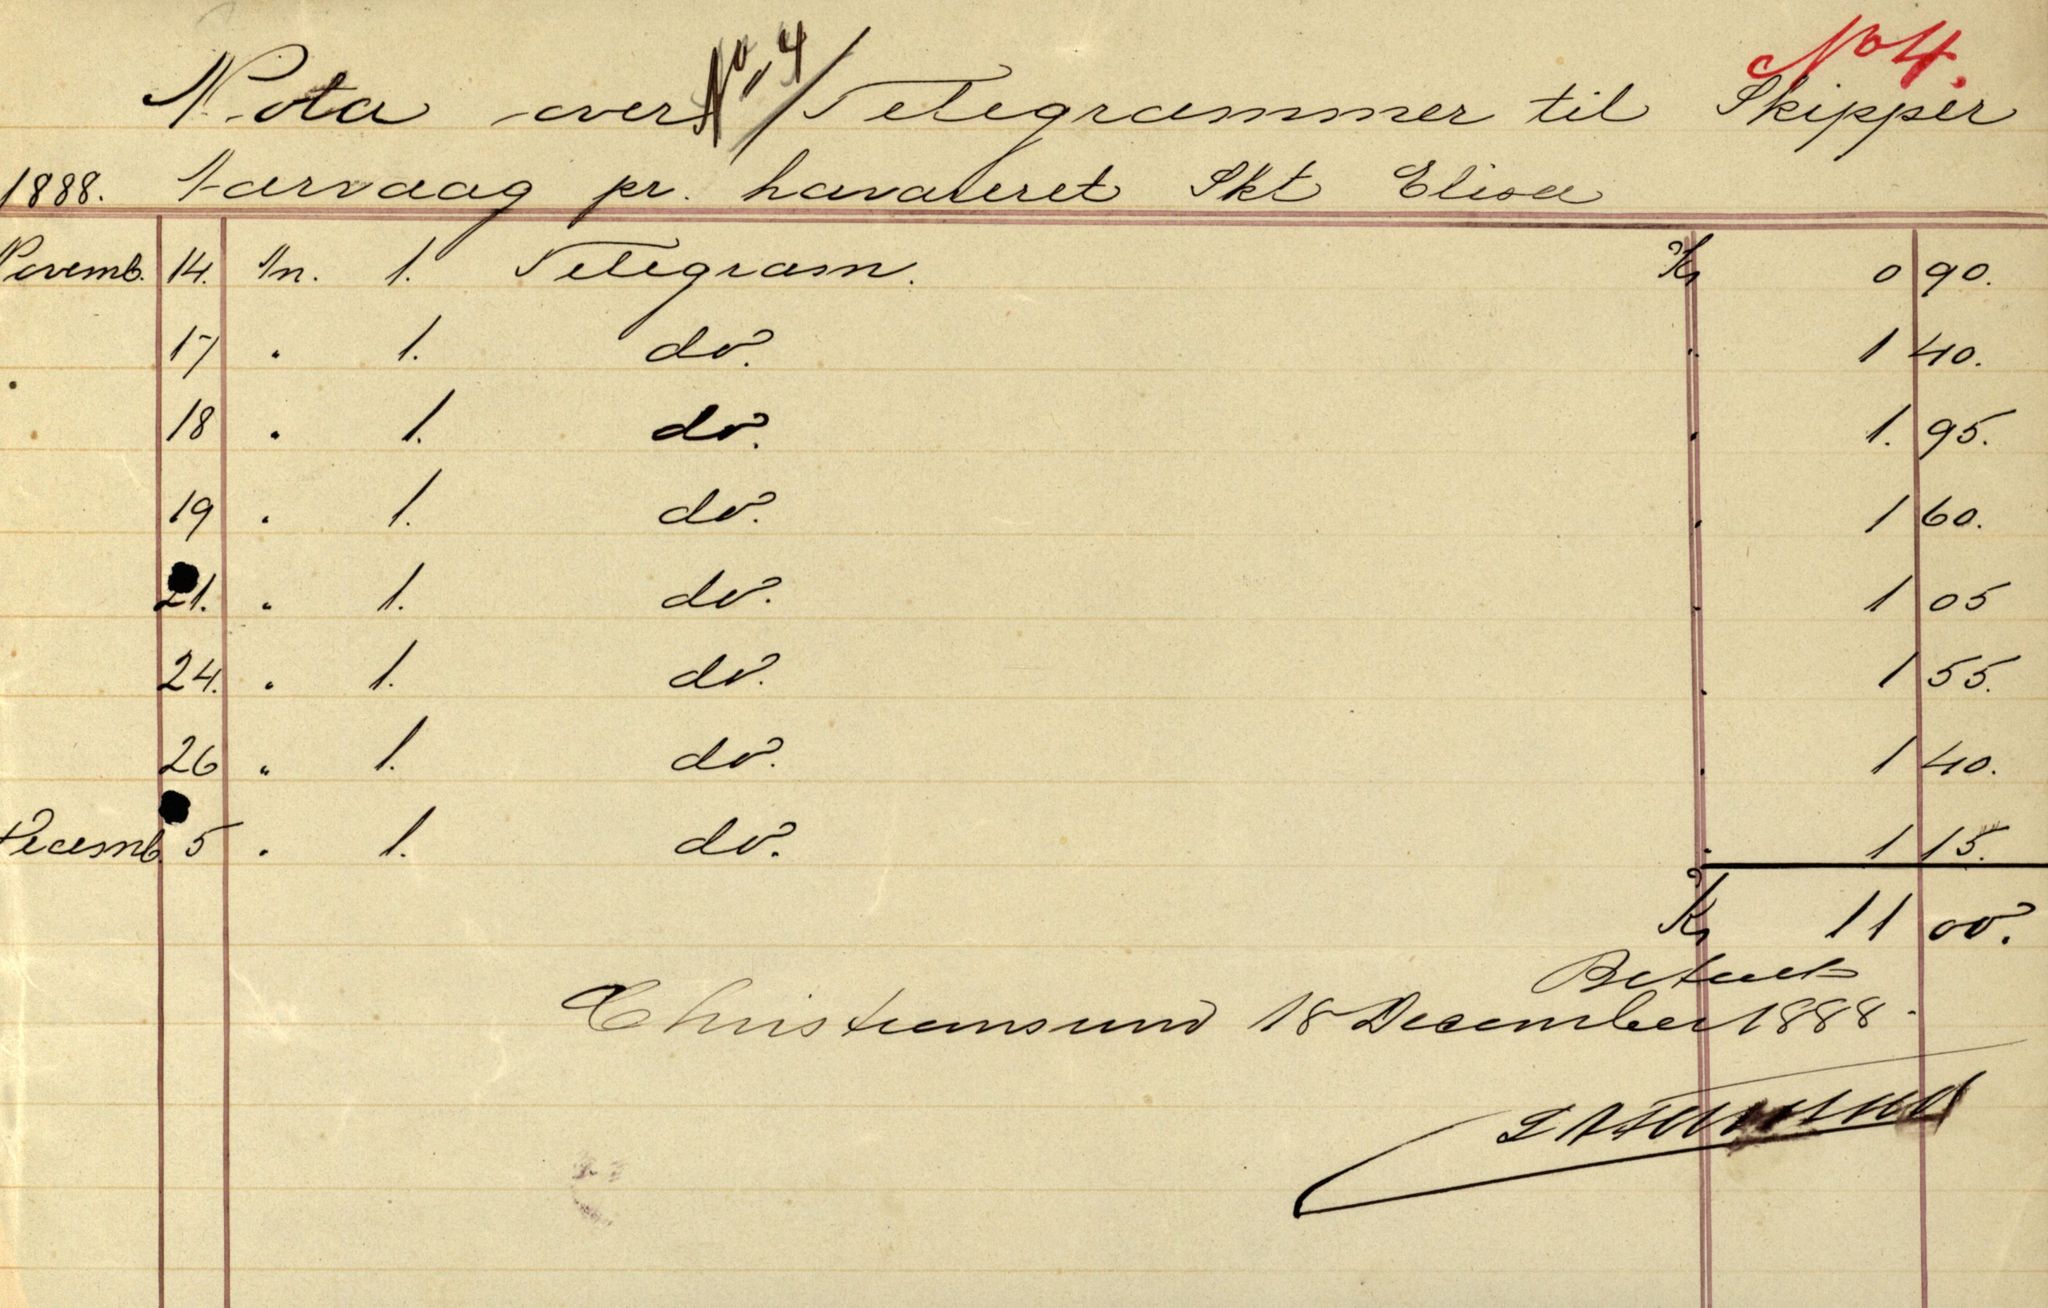 No 4
No 4.
Nota over Telegrammer til Skipper
1888. Aarvaag pr. havareret Skt Elisa
Novemb. 14. An. 1. Telegram. Kr 0 90.
17 " 1. do. " 1 40.
18 " 1. do. " 1. 95.
19 " 1. do. " 1 60.
21. " 1. do. " 1 05
24. " 1. do. " 1 55.
26 " 1. do. " 1 40.
Decemb. 5 " 1. do. " 1 15.
Kr 11 00.
Betalt
Christiansund 18 December 1888.